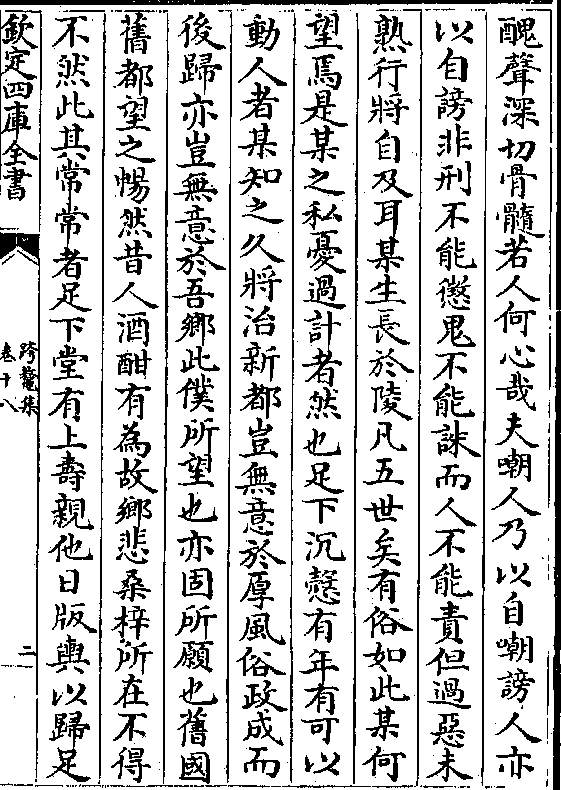 醜聲深切骨髓若人何心哉夫嘲人乃以自嘲謗人亦
以自謗非刑不能懲鬼不能誅而人不能責但過惡未
熟行將自及耳某生長於陵凡五世矣有俗如此某何
望焉是某之私憂過計者然也足下沉慤有年有可以
動人者某知之久將治新都豈無意於厚風俗政成而
後歸亦豈無意於吾鄉此僕所望也亦固所願也舊國
舊都望之暢然昔人酒酣有為故鄉悲桑梓所在不得
不然此其常常者足下堂有上壽親他日版輿以歸足
欽定四庫全書
跨鼇集
卷十八
二